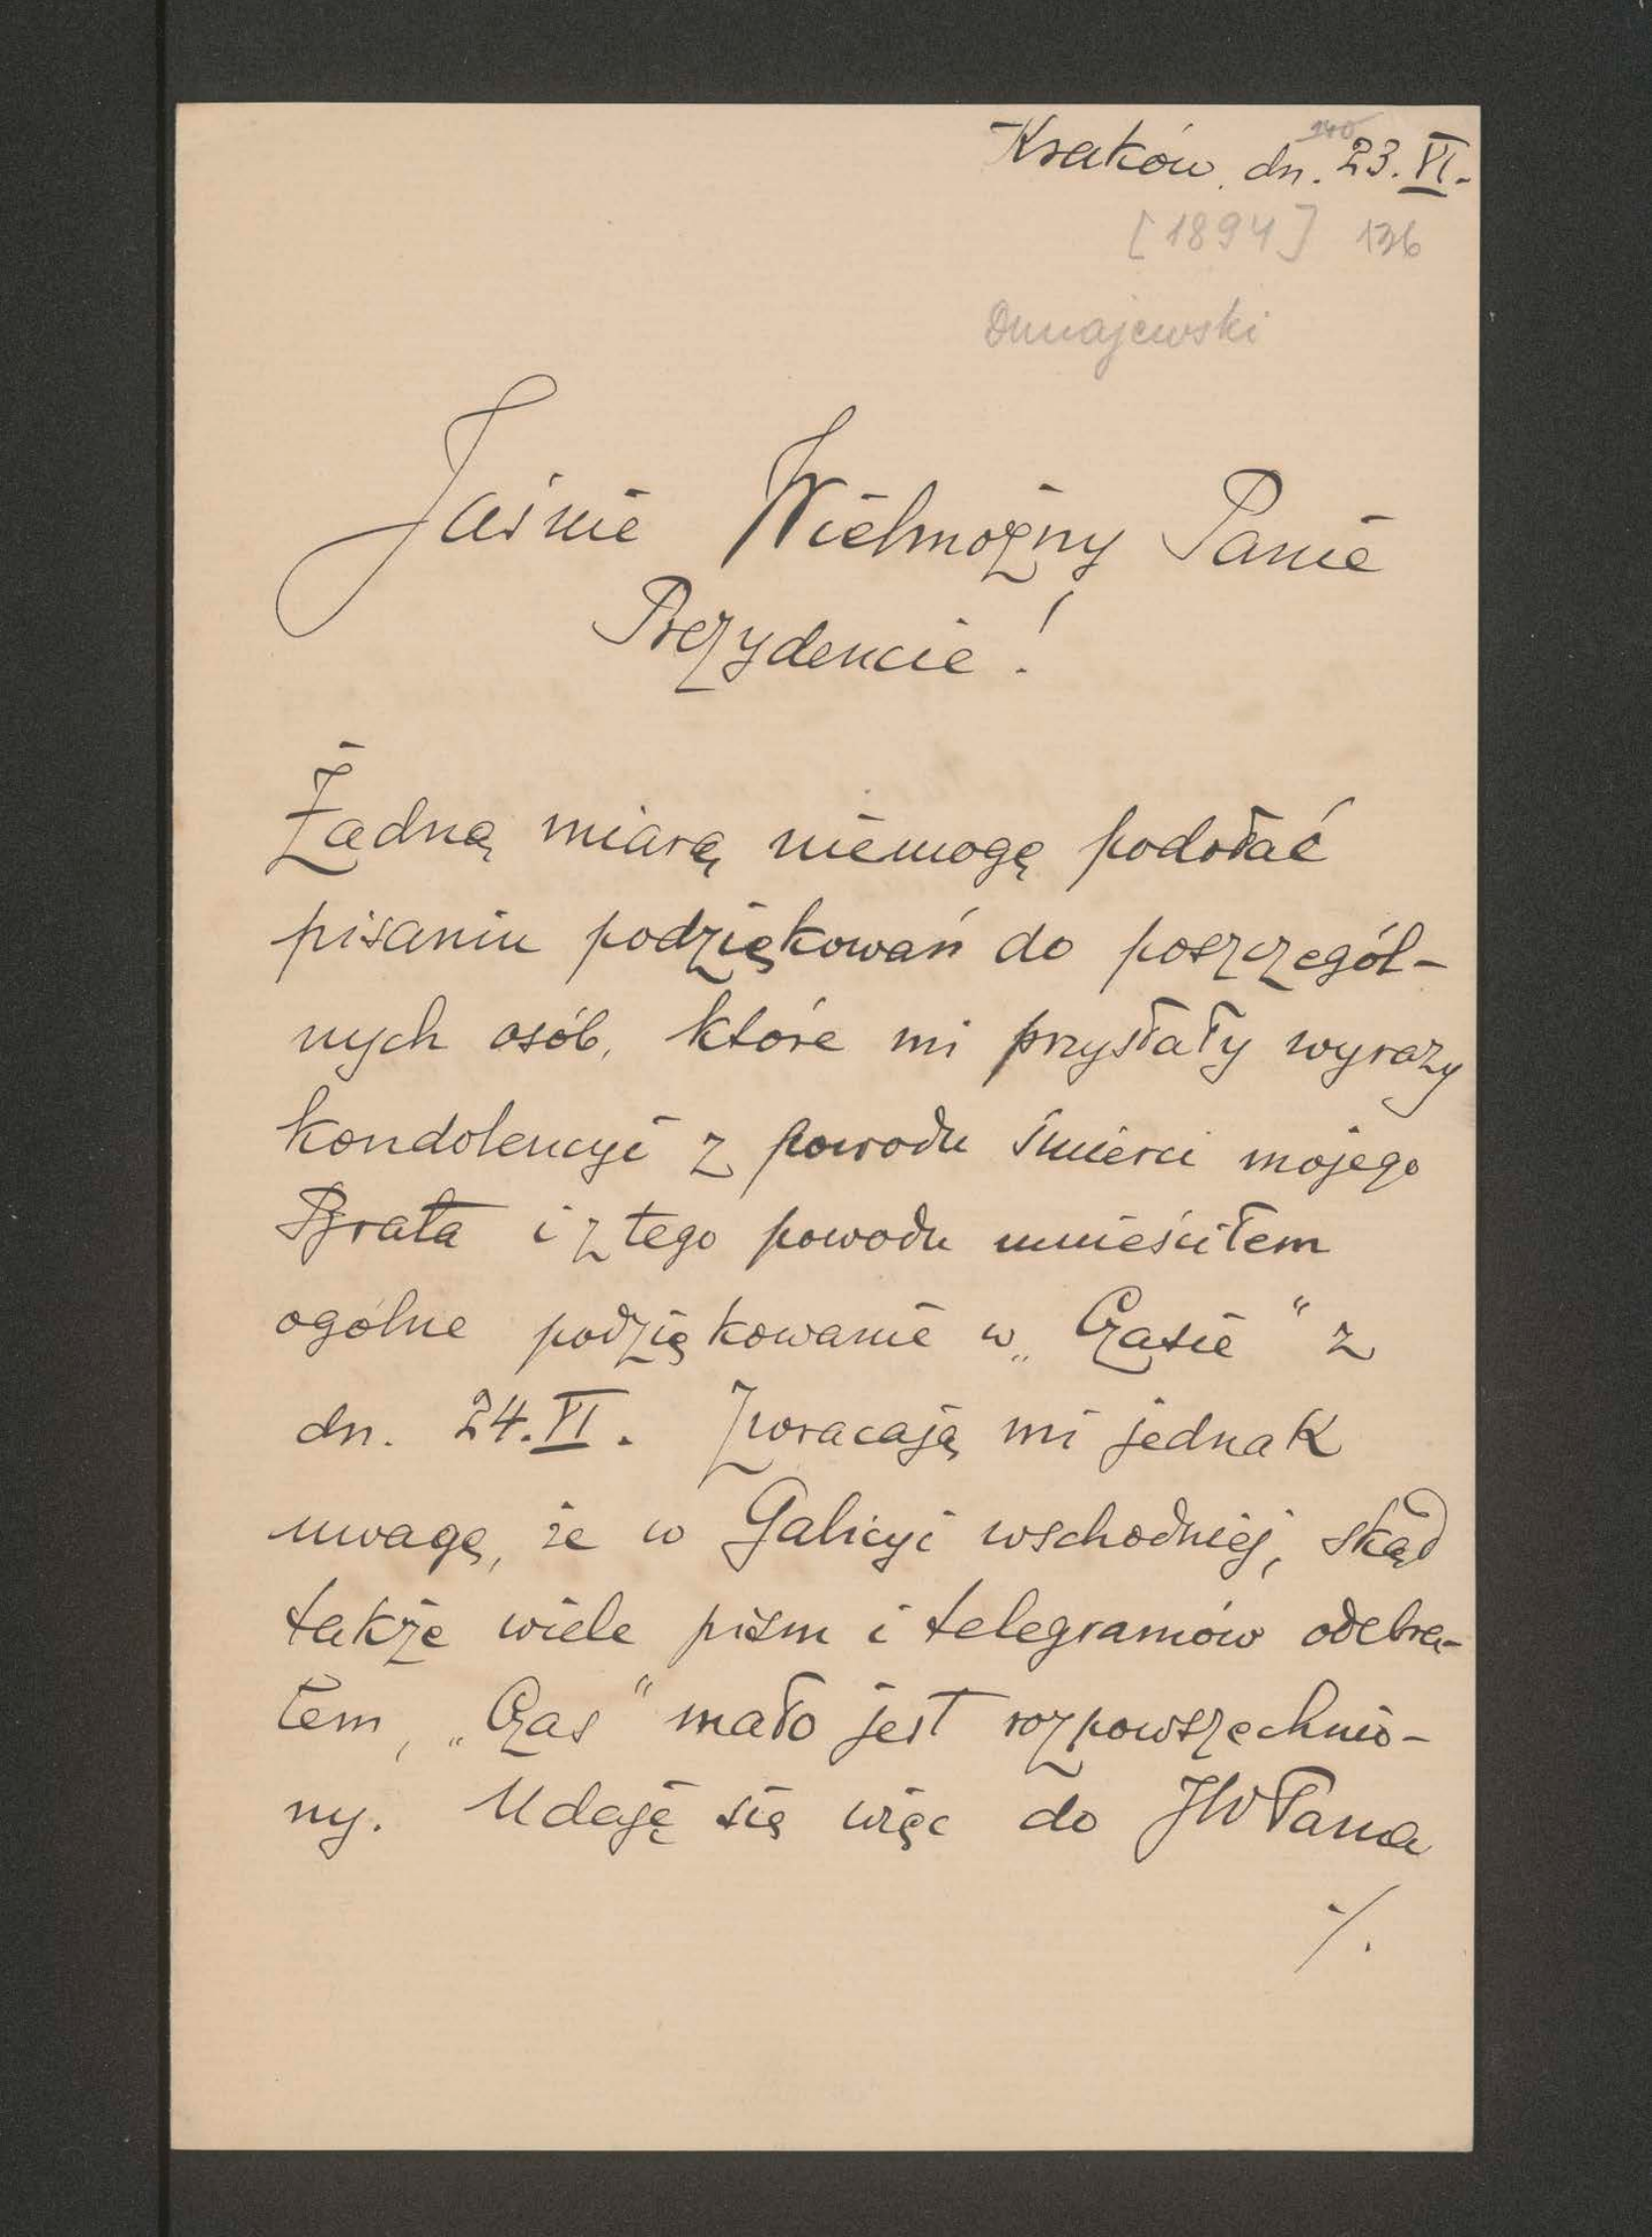 Kraków, dn. 23. VI.
140
[1894] 136
Dunajewski
Jaśnie Wielmożny Panie
Prezydencie!
Żadną miarą niemogę podołać
pisaniu podziękowań do poszczegól-
nych osób, które mi przysłały wyrazy
kondolencyi z powodu śmierci mojego
Brata i z tego powodu umieściłem
ogólne podziękowanie w „Czasie" z
dn. 24. VI. Zwracają mi jednak
uwagę, że w Galicyi wschodniej, skąd
także wiele pism i telegramów odebra-
łem, „Czas" mało jest rozpowszechnio-
ny. Udaję się więc do JWPana
./.